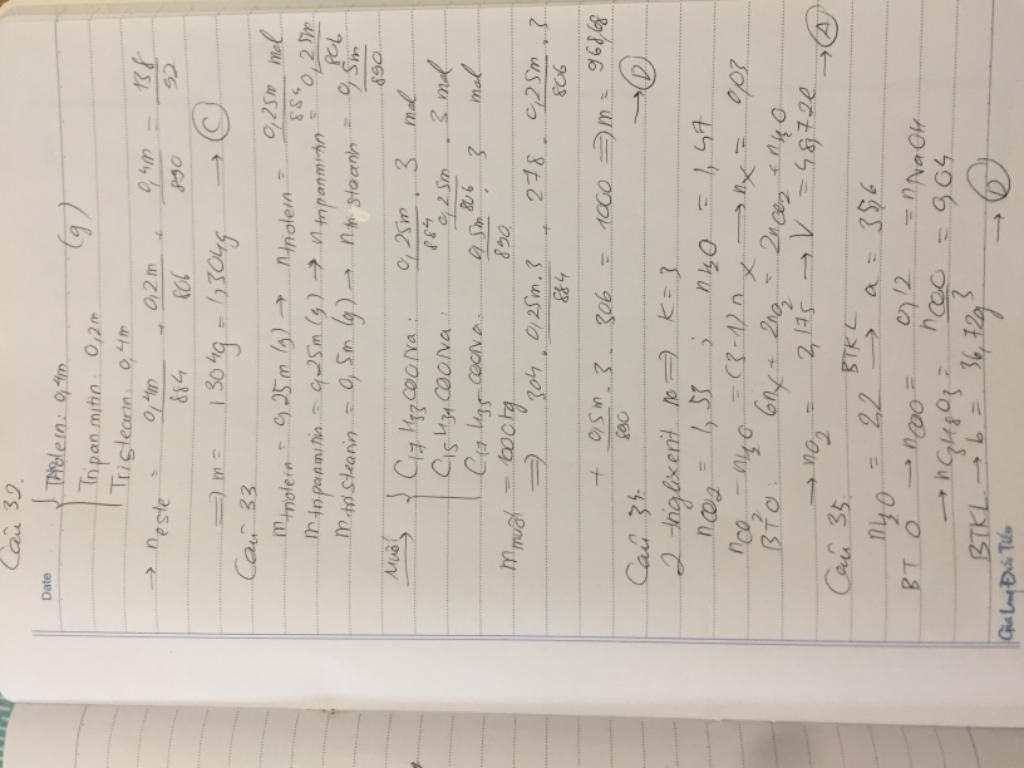 Câu 32.
Date
{ Triolein: 0,4m
Tripanmitin: 0,2m (g)
Tristearin: 0,4m
→ n este = 0,4m/884 + 0,2m/806 + 0,4m/890 = 138/92
⇒ m = 1304g = 1,304kg → Ⓒ
Câu 33
m triolein = 0,25m (g) → n triolein = 0,25m/884 mol
m tripanmitin = 0,25m (g) → n tripanmitin = 0,25m/806
m tristearin = 0,5m (g) → n tristearin = 0,5m/890
Muối → { C17H33COONa: 0,25m/884 . 3 mol
C15H31COONa: 0,25m/806 . 3 mol
C17H35COONa: 0,5m/890 . 3 mol
m muối = 1000kg
⇒ 304 . 0,25m.3/884 + 278 . 0,25m/806 . 3
+ 0,5m/890 . 3 . 306 = 1000 ⇒ m = 968,68
→ Ⓓ
Câu 34.
2 triglixerit no ⇒ K = 3
nCO2 = 1,53 ; nH2O = 1,47
nCO2 - nH2O = (3-1) nX → nX = 0,03
BTO: 6nX + 2nO2 = 2nCO2 + nH2O
→ nO2 = 2,175 → V = 48,72l → Ⓐ
Câu 35.
nH2O = 2,2 BTKL → a = 35,6
BT O → nCOO = 0,12 = nNaOH
→ nC3H8O3 = nCOO/3 = 0,04
BTKL → b = 36,72g → Ⓓ
Gia Lung Đức Tiến